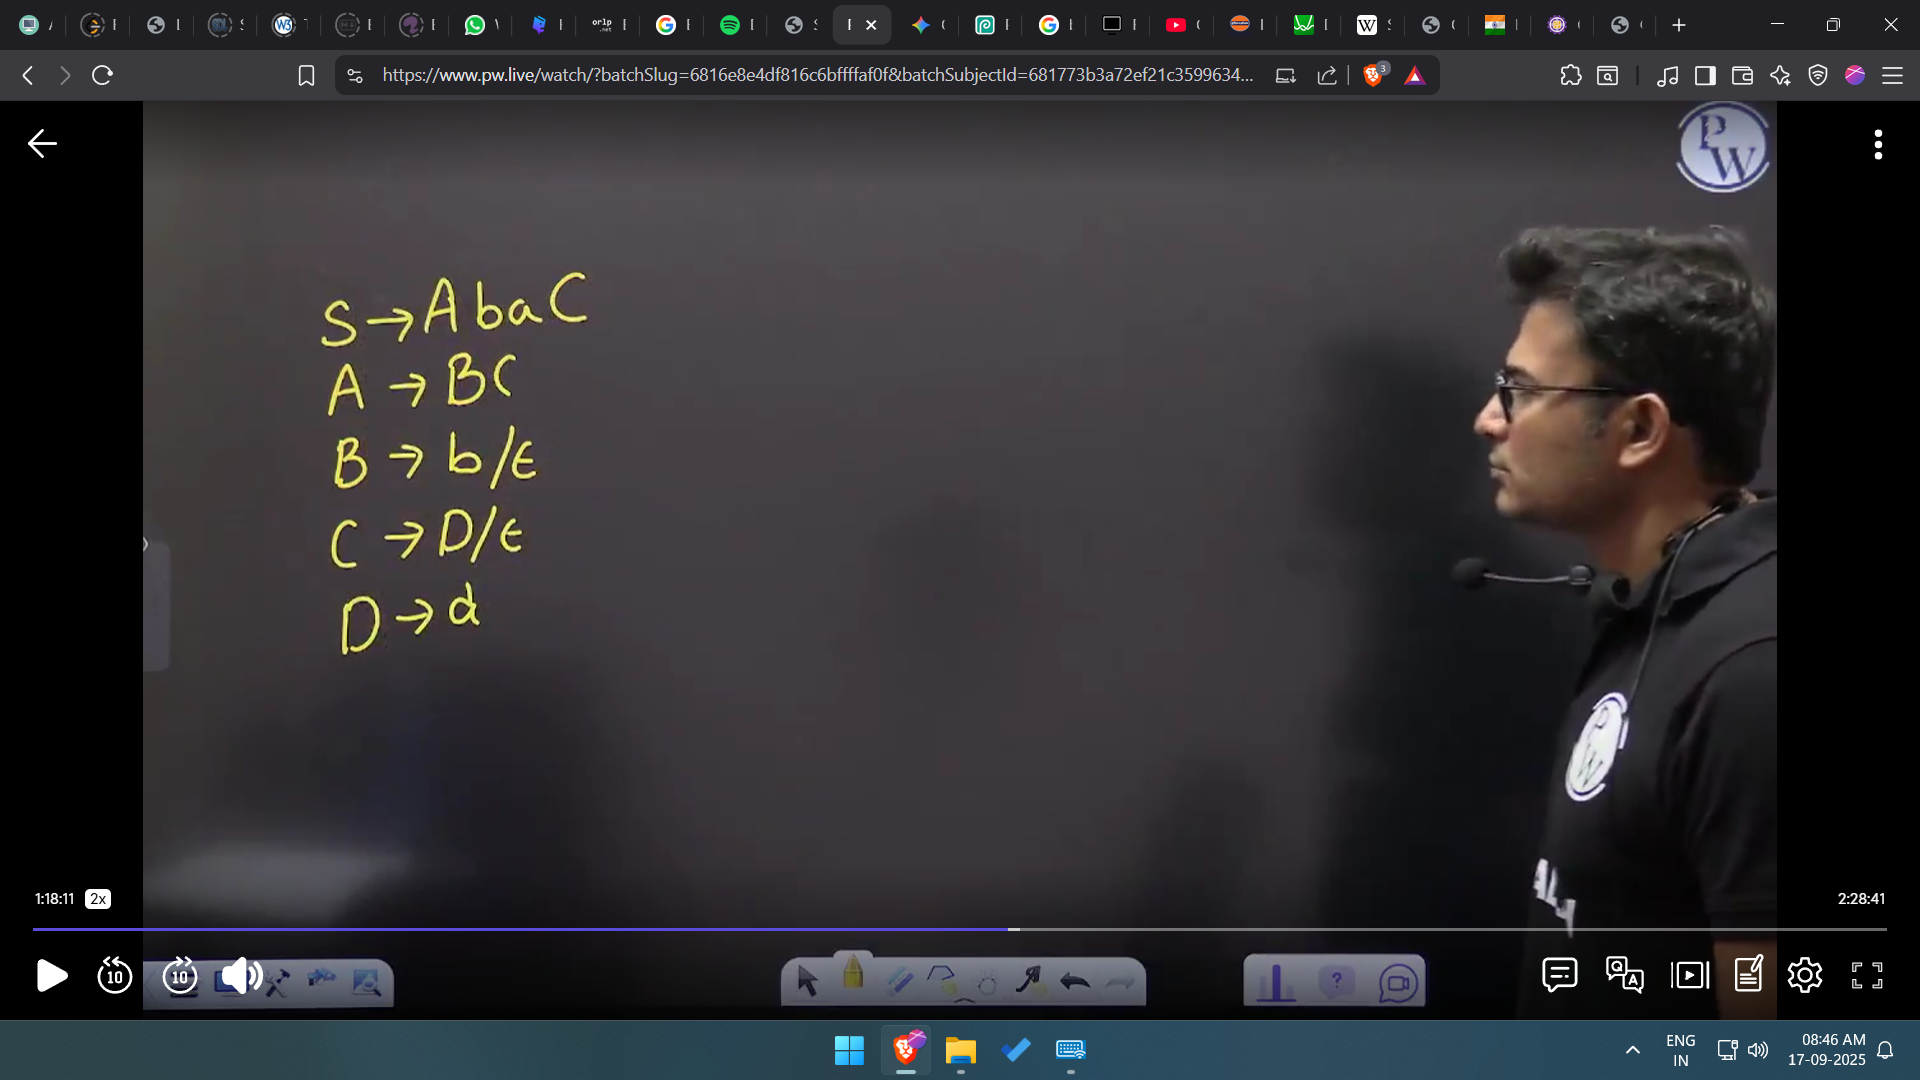 https://www.pw.live/watch/?batchSlug=6816e8e4df816c6bffffaf0f&batchSubjectId=681773b3a72ef21c3599634...
3
PW
S → A b a C
A → B C
B → b/ε
C → D/ε
D → d
PW
1:18:11 2x
2:28:41
10 10
ENG
IN
08:46 AM
17-09-2025